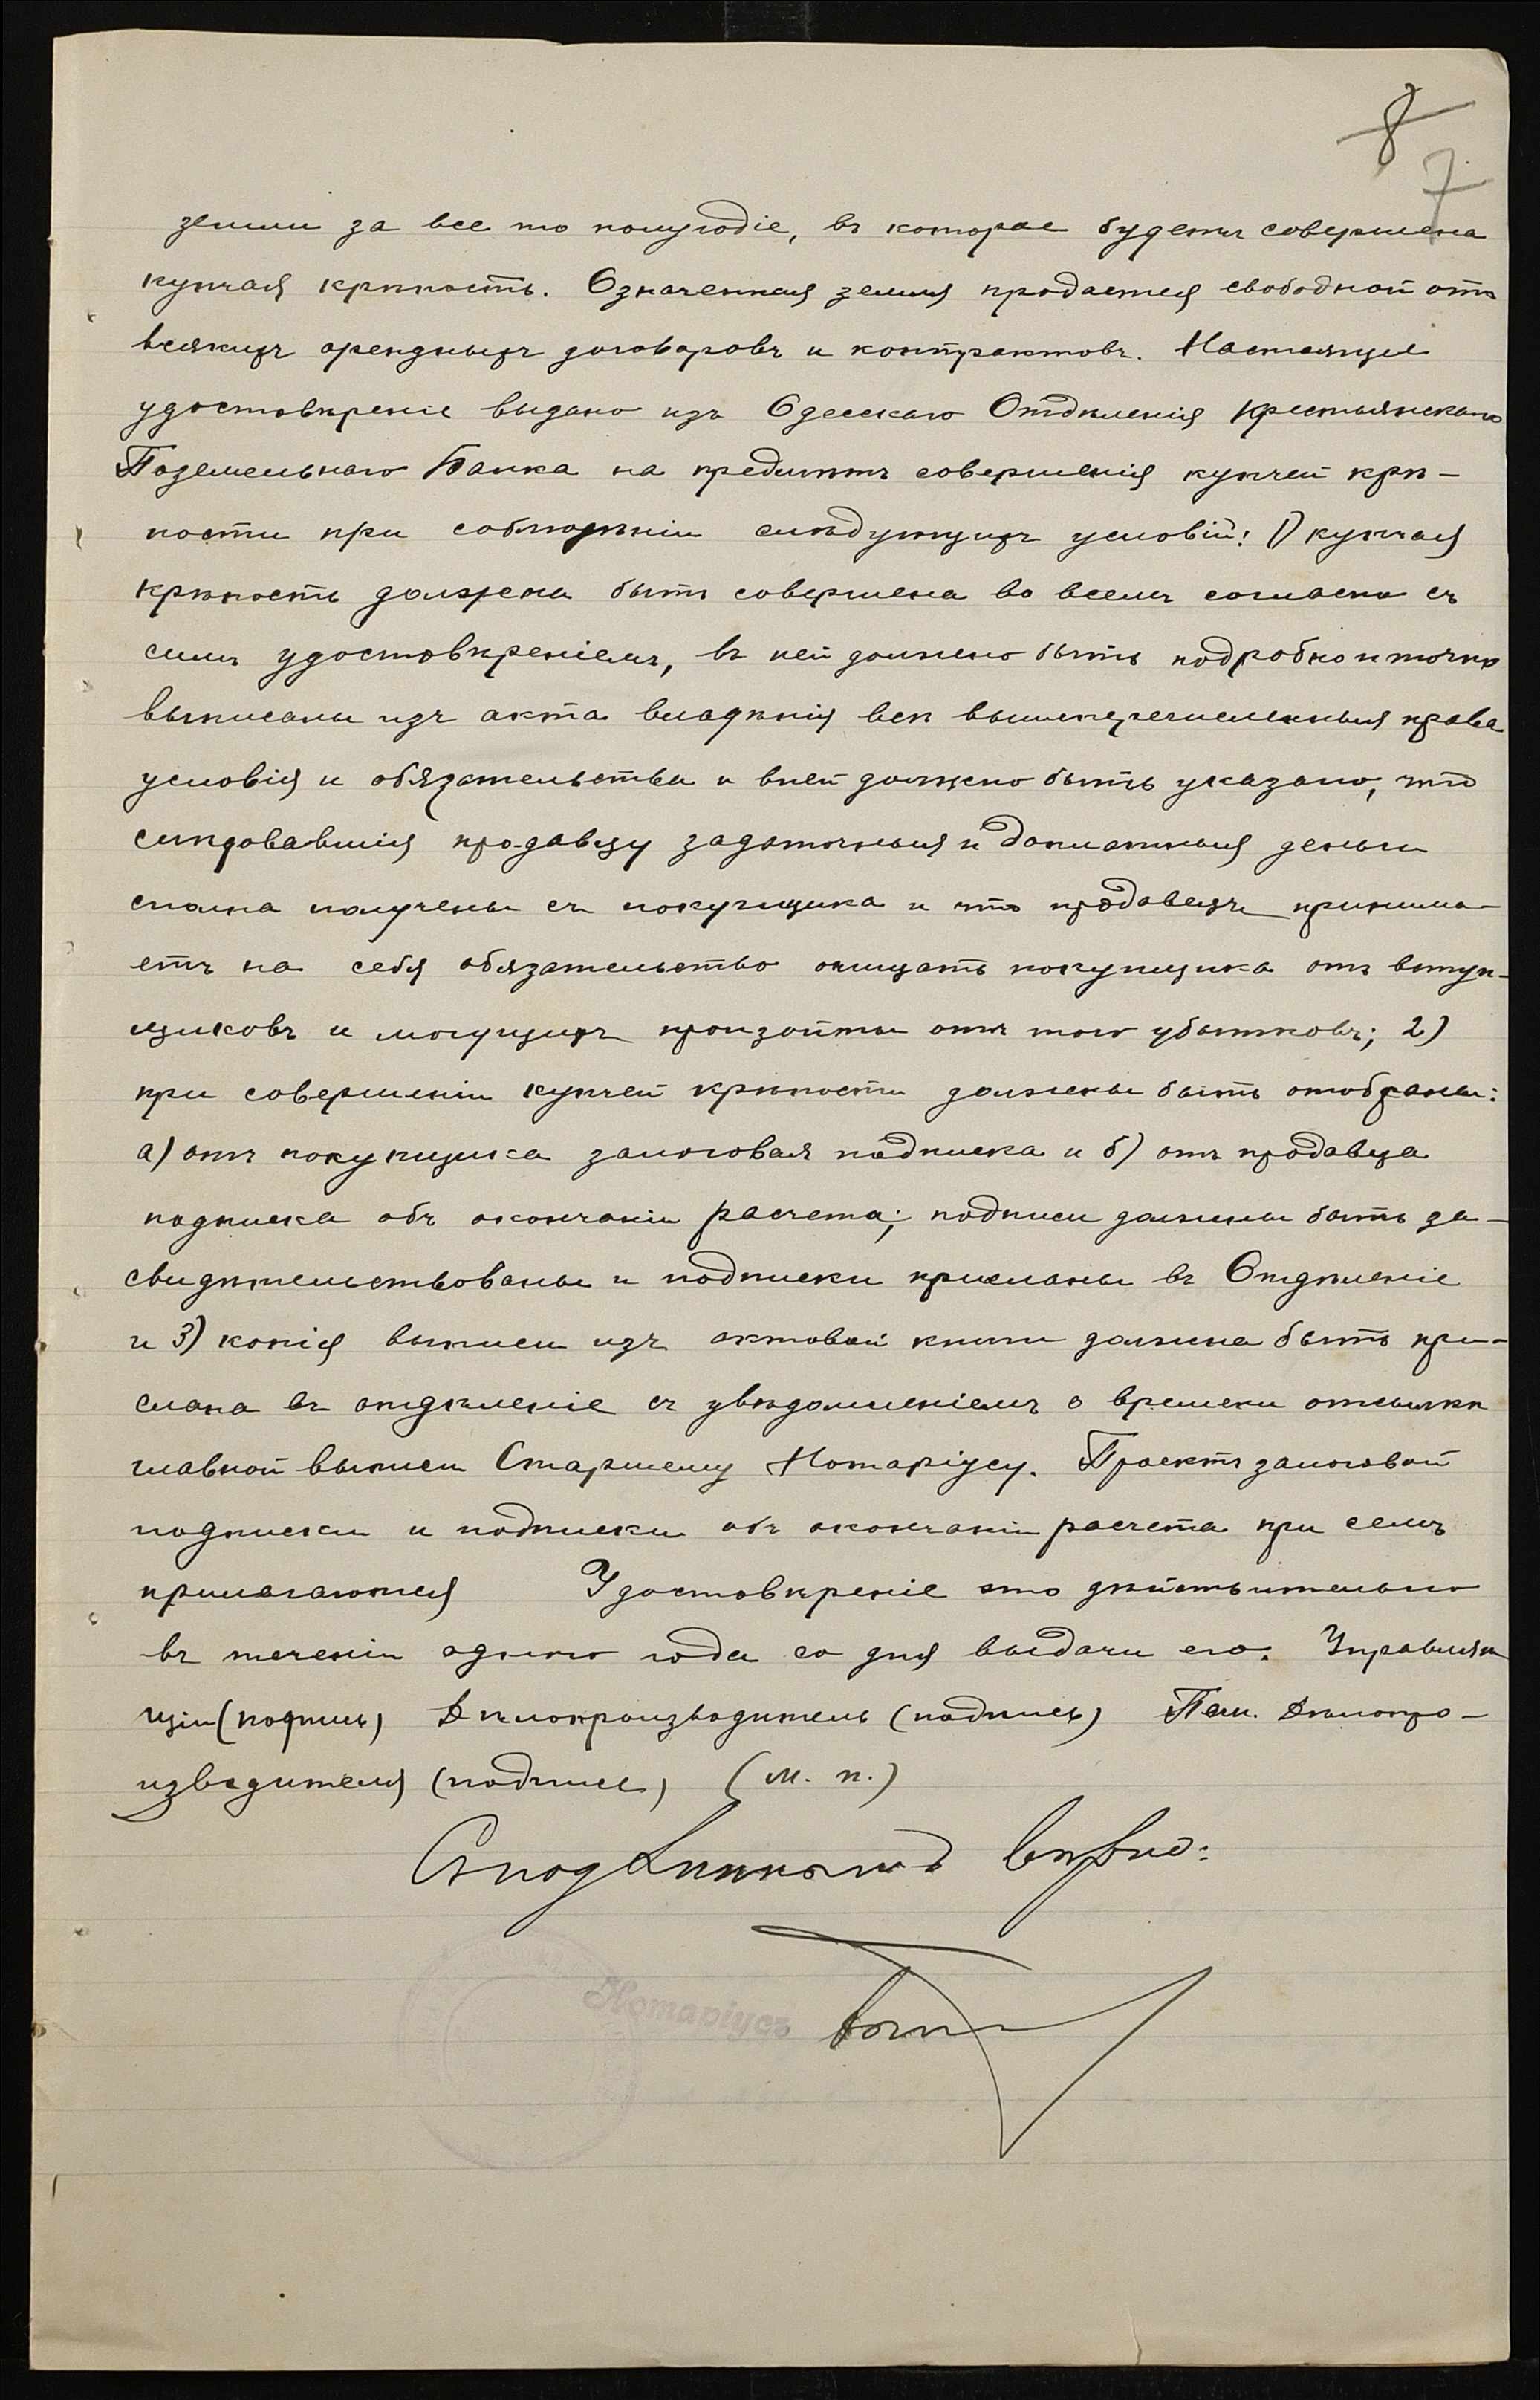 8
7
земли за все то полугодіе, въ которое будетъ совершена
купчая крѣпость. Означенная земля продается свободной отъ
всякихъ арендныхъ договоровъ и контрактовъ. Настоящее
удостовѣреніе выдано изъ Одесскаго Отдѣленія Крестьянскаго
Поземельнаго Банка на предметъ совершенія купчей крѣ-
пости при соблюденіи слѣдующихъ условій: 1) купчая
крѣпость должна быть совершена во всемъ согласно съ
симъ удостовѣреніемъ, въ ней должно быть подробно и точно
выписаны изъ акта владѣнія всѣ вышеперечисленныя права
условія и обязательства и в ней должно быть указано, что
слѣдовавшія продавцу задаточныя и доплатныя деньги
сполна получены съ покупщика и что продавецъ принима-
етъ на себя обязательство очищать покупщика отъ вступ-
щиковъ и могущихъ произойти отъ того убытковъ; 2)
при совершеніи купчей крѣпости должны быть отобраны:
а) отъ покупщика залоговая подписка и б) отъ продавца
подписка объ окончаніи расчета; подписи должны быть за-
свидѣтельствованы и подписки присланы въ Отдѣленіе
и 3) копія выписи изъ актовой книги должна быть при-
слана въ отдѣленіе съ увѣдомленіемъ о времени отсылки
главной выписи Старшему Нотаріусу. Проектъ залоговой
подписки и подписки объ окончаніи расчета при семъ
прилагаются Удостовѣреніе это дѣйствительно
въ теченіи одного года со дня выдачи его. Управляю
щій (подпись) Дѣлопроизводитель (подпись) Пом. Дѣлопро-
изводителя (подпись) (М. п.)
Съ подлиннымъ вѣрно:
Нотаріусъ